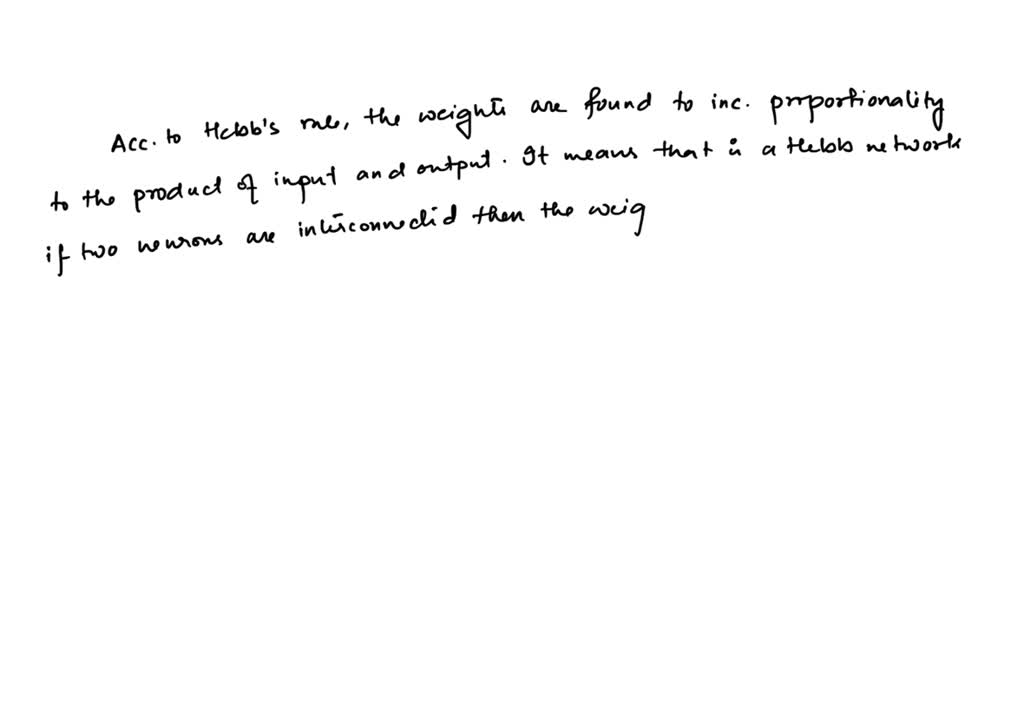 Acc. to Hebb's rule, the weights are found to inc. proportionality
to the product of input and output. It means that in a Hebb network
if two neurons are interconnected then the weig